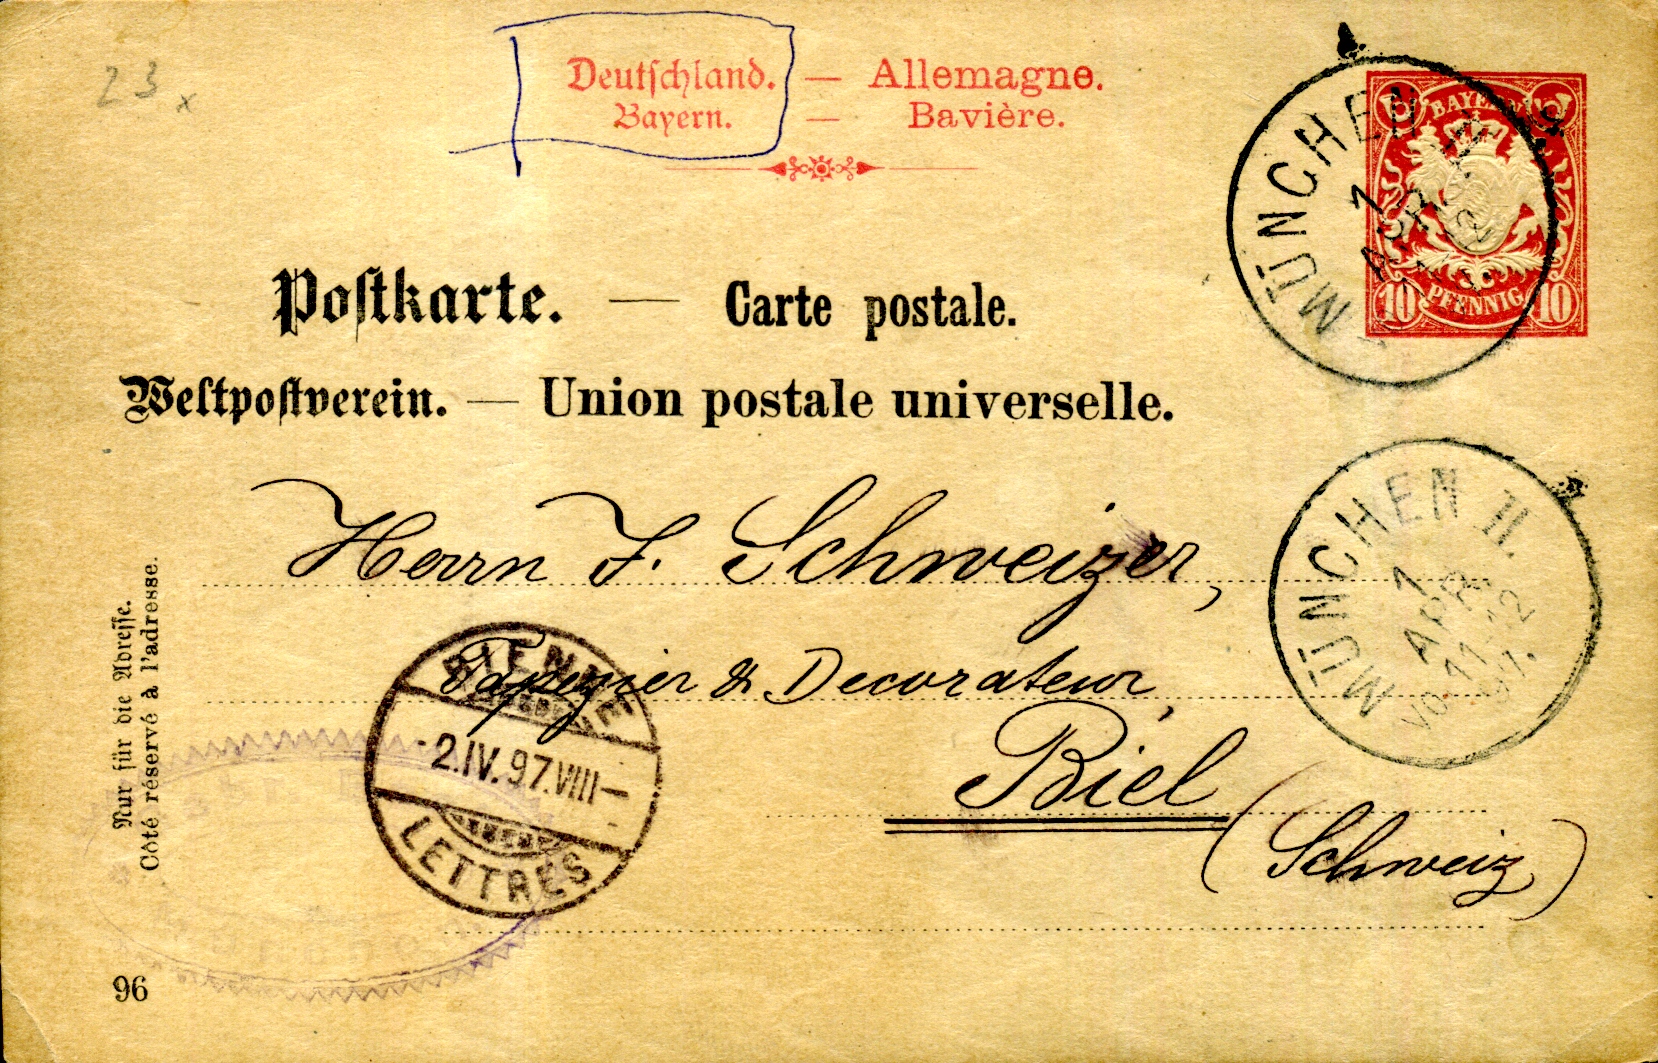 23 x
Deutschland. — Allemagne.
Bayern. — Bavière.
BAYERN
10 PFENNIG 10
MÜNCHEN
1
APR
Postkarte. — Carte postale.
Weltpostverein. — Union postale universelle.
MÜNCHEN II.
1
APR
VO. 11-12
97.
Herrn F. Schweizer,
Tapezier & Decorateur,
Biel
(Schweiz)
BIENNE
-2.IV.97.VIII-
LETTRES
Nur für die Adresse.
Côté réservé à l'adresse.
96